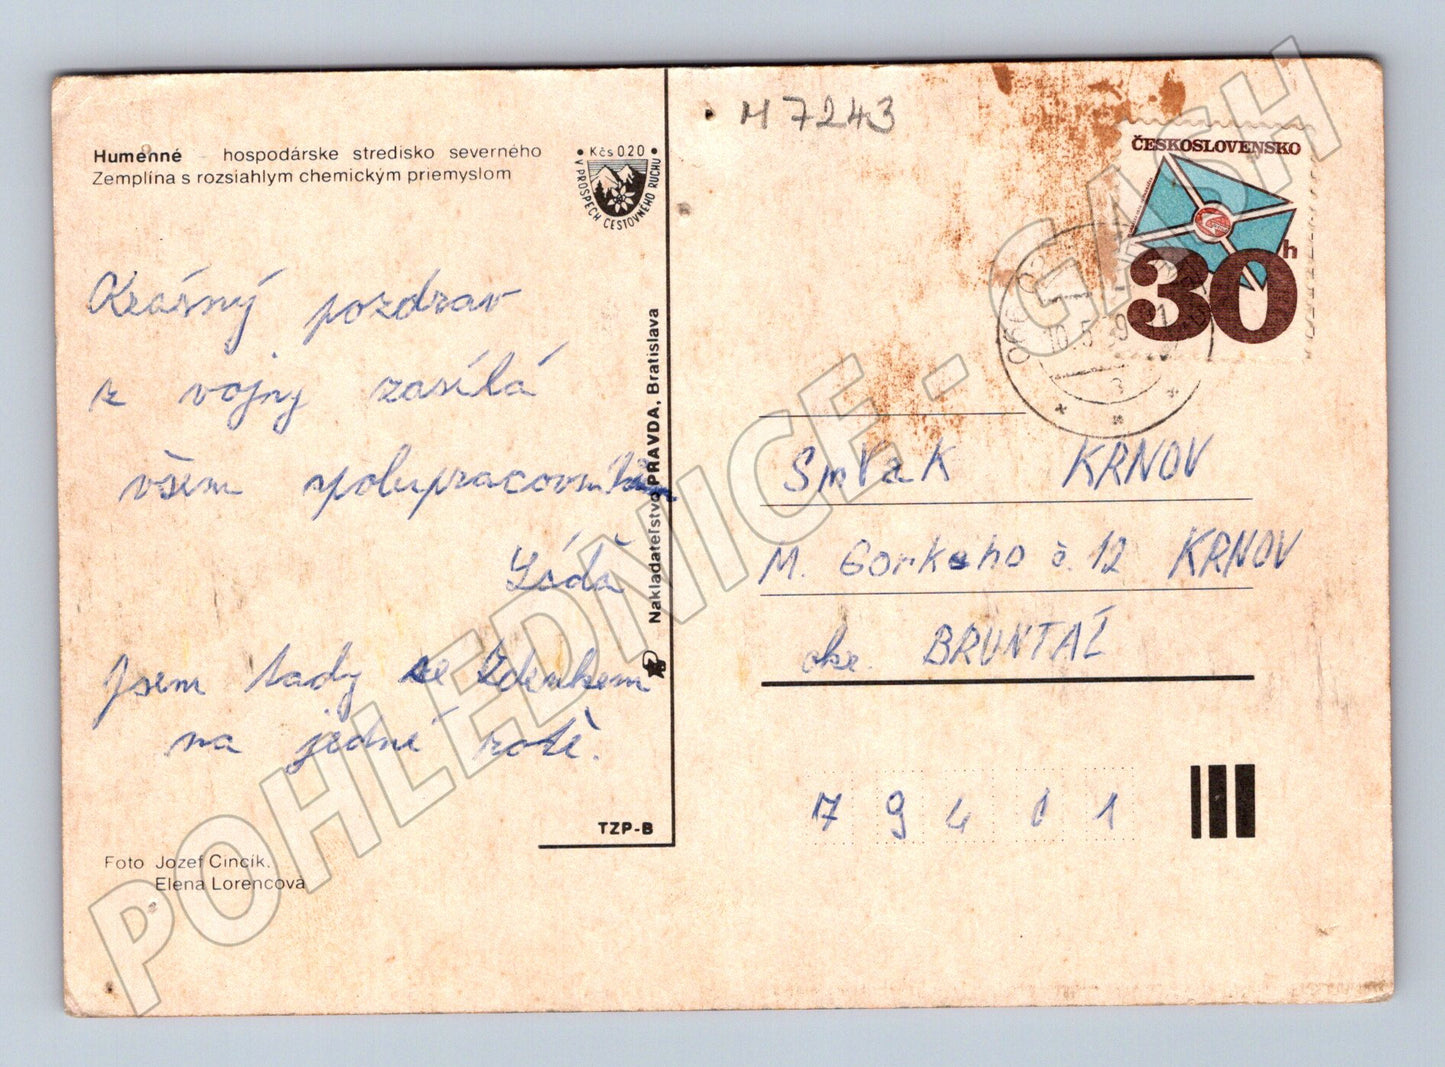 M 7243
Humenné - hospodárske stredisko severného
Zemplína s rozsiahlym chemickým priemyslom
• Kčs 020 •
V PROSPECH CESTOVNÉHO RUCHU
ČESKOSLOVENSKO
30h
10.5
3
Krásný pozdrav
z vojny zasílá
všem spolupracovníkům
Láďa
Jsem tady se Zdenkem
na jedné rotě.
Nakladateľstvo PRAVDA, Bratislava
TZP-B
Foto Jozef Cincík.
Elena Lorencová
SmVaK KRNOV
M. Gorkeho č. 12 KRNOV
okr. BRUNTÁL
794 01
POHLEDNICE - GASH